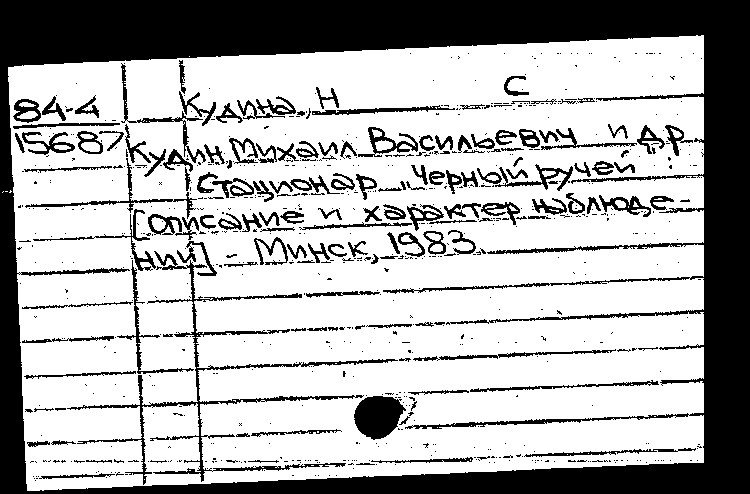 84-4 Кудина, Н С
15687 Кудин, Михаил Васильевич и др
Стационар „Черный ручей" :
[описание и характер наблюде-
ний] - Минск, 1983.